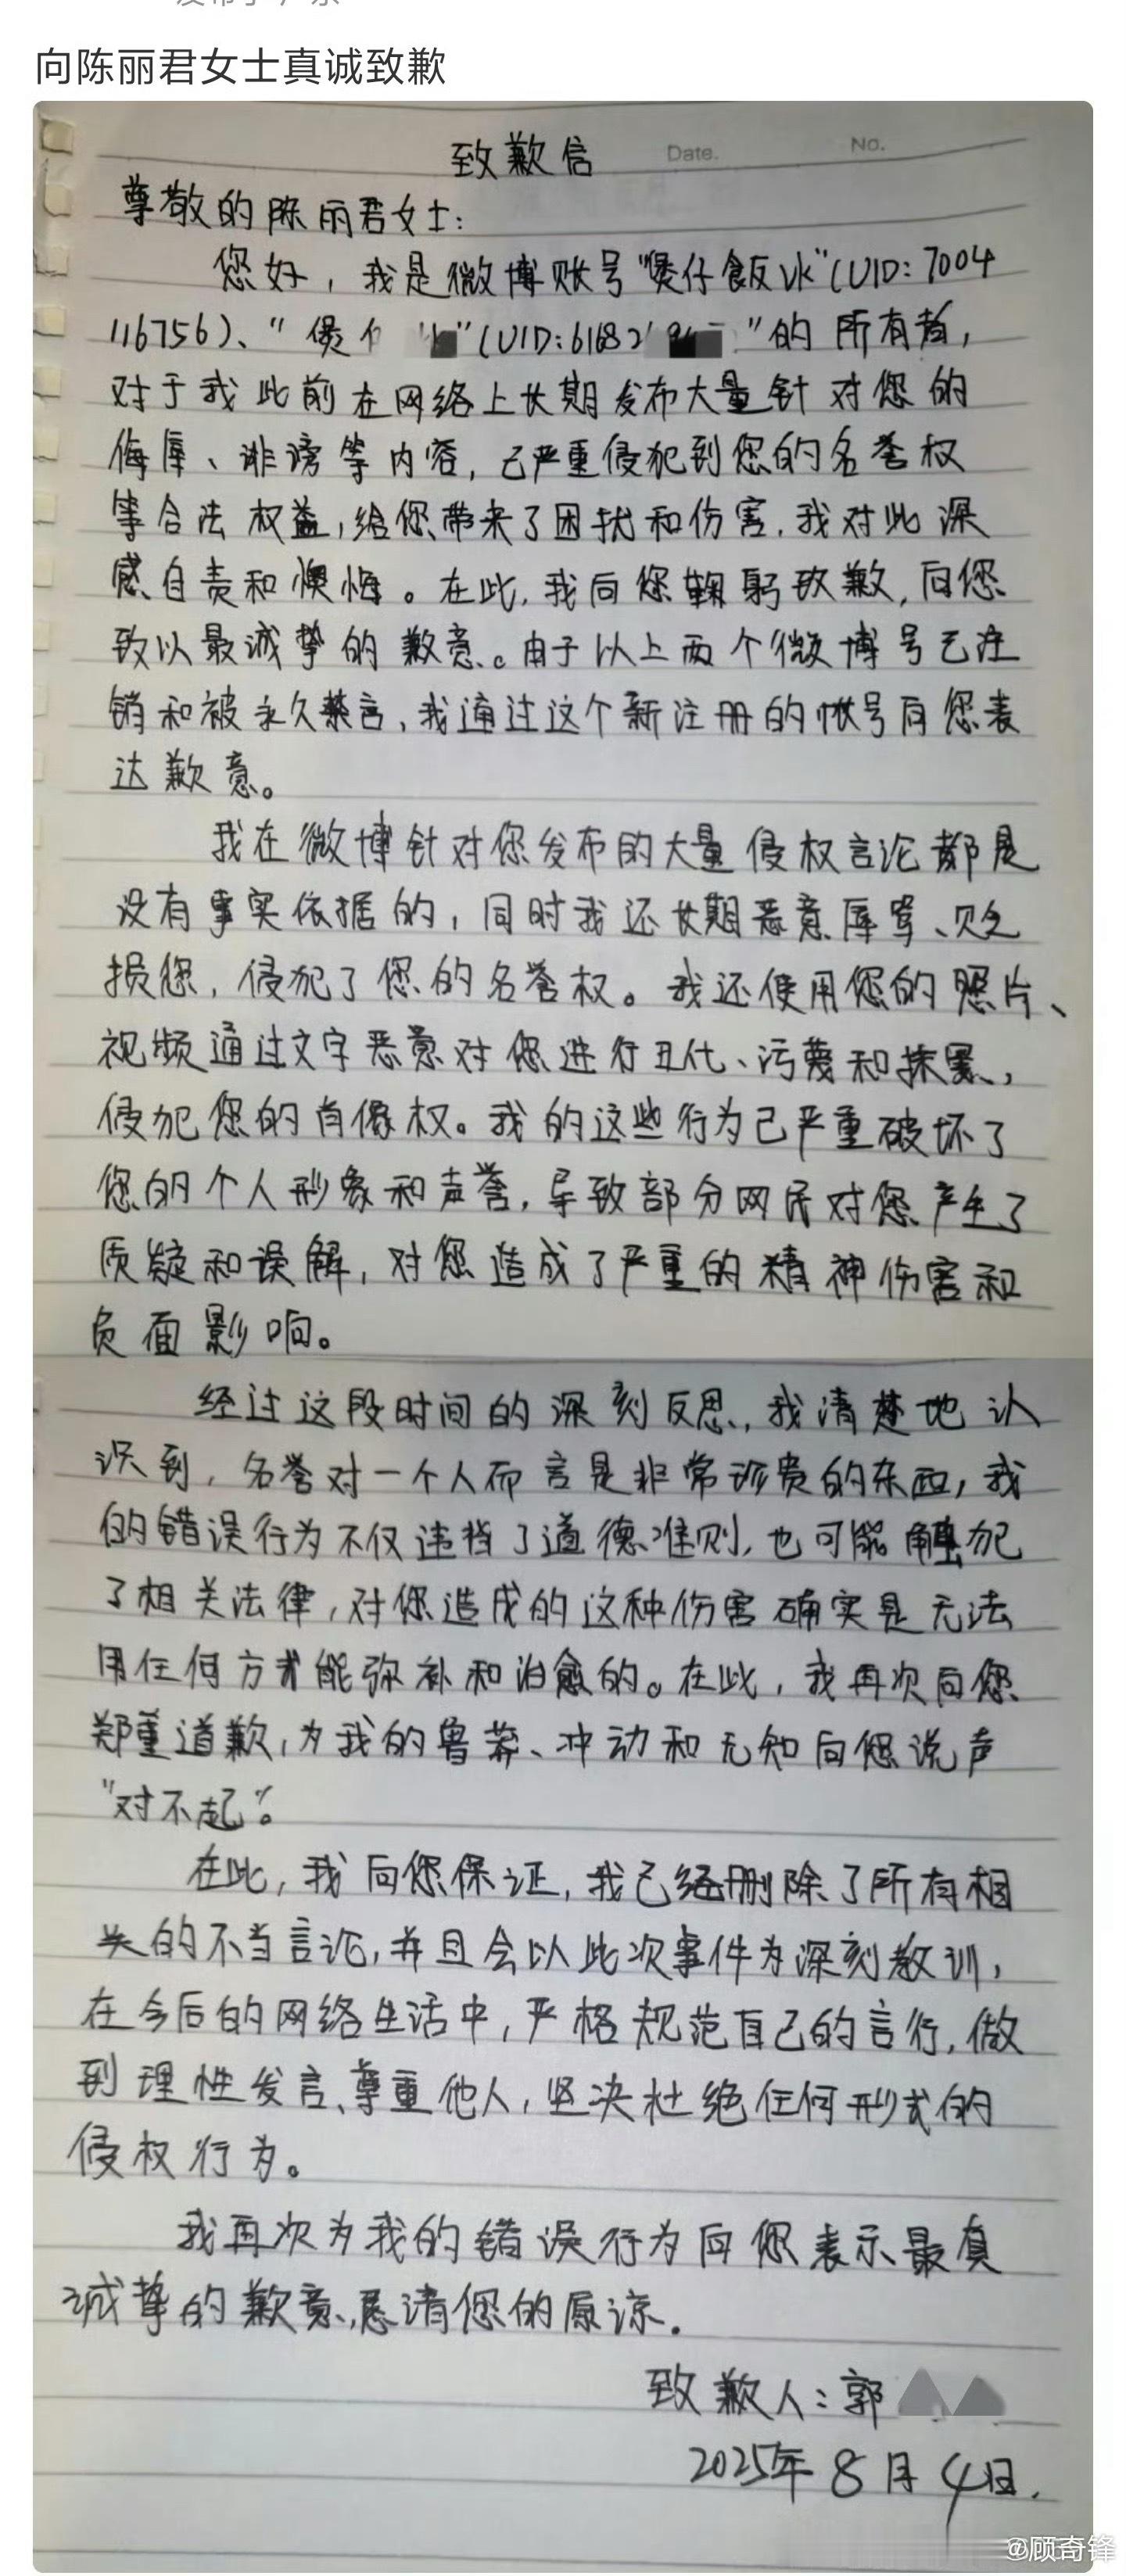 向陈丽君女士真诚致歉
致歉信 Date. No.
尊敬的陈丽君女士：
您好，我是微博账号“煲仔飯vk”(UID:7004
116756)、“煲仔”(UID:61682”的所有者，
对于我此前在网络上长期发布大量针对您的
侮辱、诽谤等内容，已严重侵犯到您的名誉权
等合法权益，给您带来了困扰和伤害，我对此深
感自责和懊悔。在此，我向您鞠躬致歉，向您
致以最诚挚的歉意。由于以上两个微博号已注
销和被永久禁言，我通过这个新注册的帐号向您表
达歉意。
我在微博针对您发布的大量侵权言论都是
没有事实依据的，同时我还长期恶意辱骂、贬
损您，侵犯了您的名誉权。我还使用您的照片、
视频通过文字恶意对您进行丑化、污蔑和抹黑，
侵犯您的肖像权。我的这些行为已严重破坏了
您的个人形象和声誉，导致部分网民对您产生了
质疑和误解，对您造成了严重的精神伤害和
负面影响。
经过这段时间的深刻反思，我清楚地认
识到，名誉对一个人而言是非常珍贵的东西，我
的错误行为不仅违背了道德准则，也可能触犯
了相关法律，对您造成的这种伤害确实是无法
用任何方式能弥补和治愈的。在此，我再次向您
郑重道歉，为我的鲁莽、冲动和无知向您说声
“对不起”。
在此，我向您保证，我已经删除了所有相
关的不当言论，并且会以此次事件为深刻教训，
在今后的网络生活中，严格规范自己的言行，做
到理性发言、尊重他人，坚决杜绝任何形式的
侵权行为。
我再次为我的错误行为向您表示最真
诚挚的歉意，恳请您的原谅。
致歉人：郭
2025年8月4日.
@顾奇锋